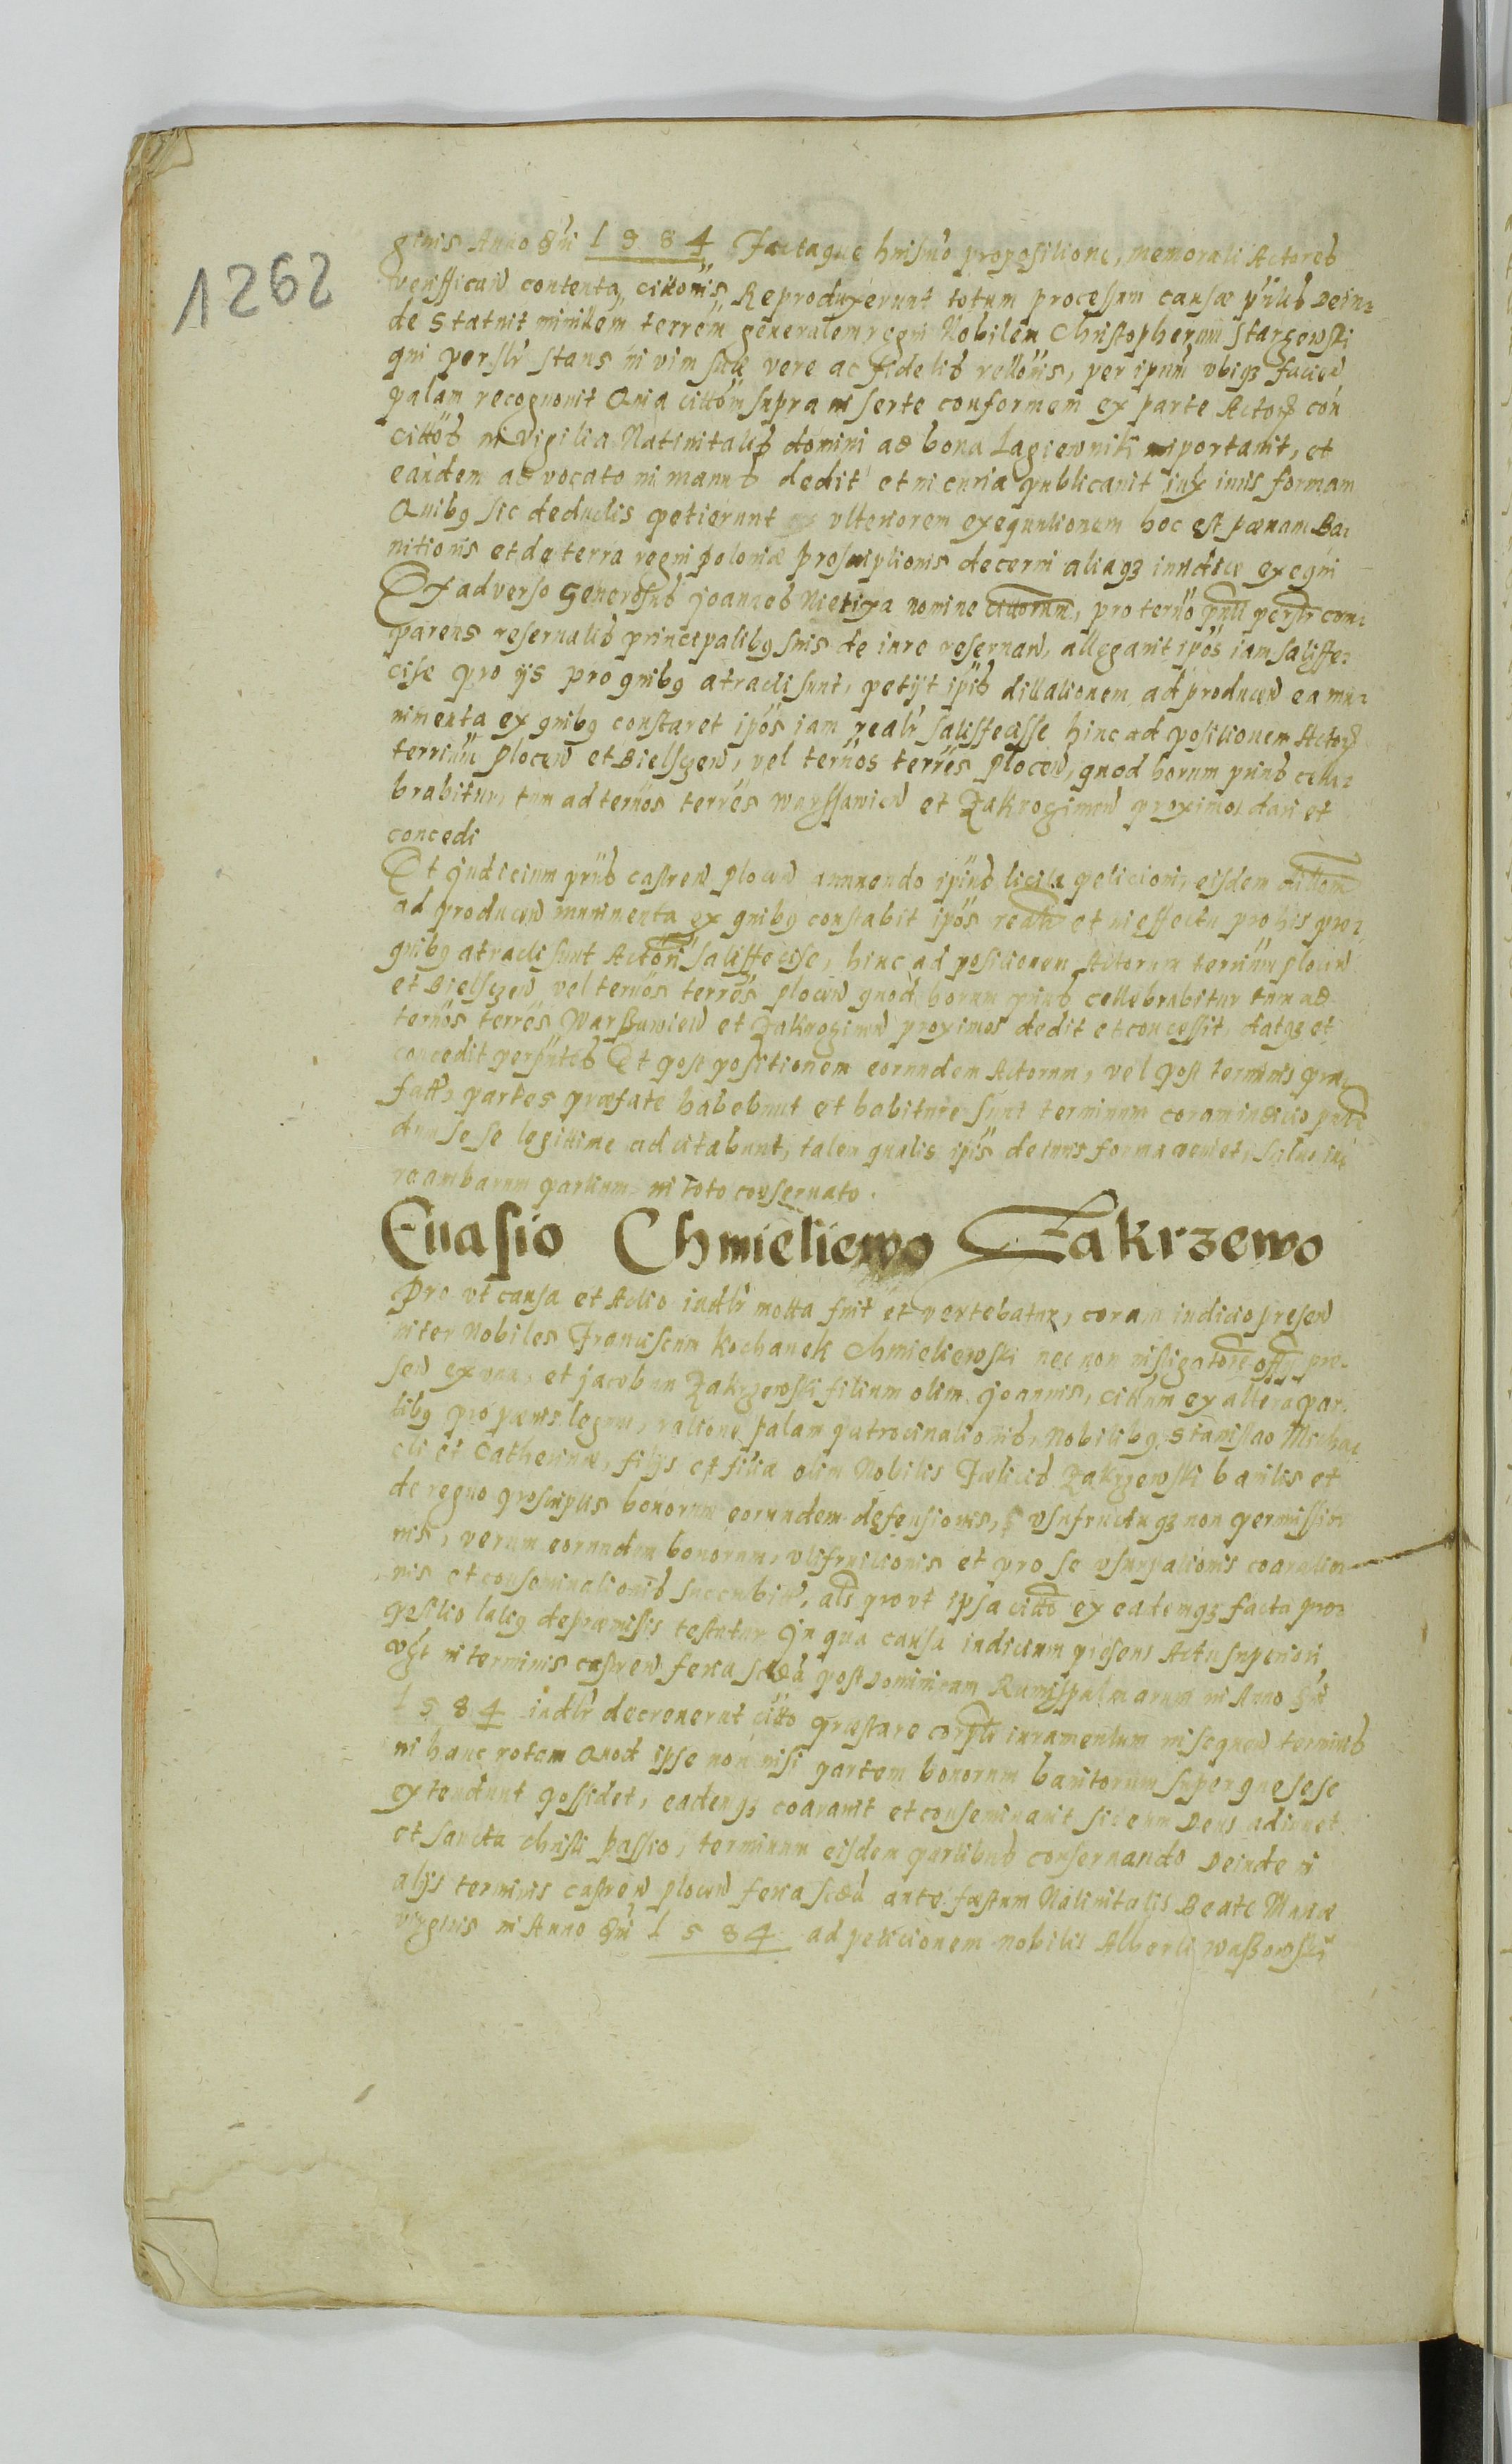 1262
ginis Anno dni 1584 Factaque huiusmo propositione, memorati Actores
verifficand contenta cittonis Reproduxerunt totum processum causæ pñtis Dein=
de Statuit minislem terrem generalem regni Nobilem Christopherum Starzewski
qui perslr stans in vim suæ vere ac fidelis rellonis, per ipum vbiqz faciend
palam recognouit Quia cittom supra inserte conformem ex parte Actorz con
cittos in Vigilia Natiuitatis domini ad bona Lagiewniki importauit, et
eandem aduocato in manus dedit et in curia publicauit iux iuris formam
Quibg sic deductis petierunt vlteriorem exequutionem hoc est pænam Ba=
nitionis et de terra regni poloniæ proscriptionis decerni aliaqz iuridice exequi
Ex aduerso Generosus Joannes Nietixa nomine cittorum, pro termo pnti perslr com=
parens reseruatis principalibg suis de iure reseruan, allegauit ipos iam satisffe=
cisse pro ijs pro quibg atracti sunt, petijt ipis dillationem ad producen ea mu=
nimenta ex quibg constaret ipos iam realr satisffecisse hinc ad positionem Actorz
terrimu plocen et Bielscen, vel termos terres plocen, quod horum prius cele=
brabitur, tum ad termos terres warssauien et Zakrogimen proximos dari et
concedi
Et Judicium pnis castren plocen annuendo ipius licita peticioni, eisdem dillom
ad producen munimenta ex quibg constabit ipos realr et in effectu pro his pro=
quibg atracti sunt Actori satisffecisse, hinc ad positionem Actorum terrimu plocen
et Bielscen vel termos terres plocen quod horum prius cellebrabitur tum ad
termos terres Warßauien et Zakrogimen proximos dedit et concessit, datqz et
concedit per pntes Et post positionem eorundem Actorum, vel post terminis præ
fatts, partes præfate habebunt et habituræ sunt terminum coram iudicio pnti
dum sese legittime adcitabunt, talem qualis ipis de iuris forma veniet, saluo iu=
re ambarum partium in toto conseruato.
Euasio Chmieliewo Zakrzewo
Pro vt causa et Actio iudlr motta fuit et vertebatur, coram iudicio presen
inter Nobiles Franciscum Kochanek Chmieliewski nec non instigatore offij pre=
sen ex una, et jacobum Zakrzewski filium olim Joannis, cittum ex altera par=
tibg pro pænis legum, ratione palam patrocinationis, Nobilibg Stanislao Micha=
eli et Catherinæ, filijs et filiæ olim Nobilis Fælicis Zakrzewski banitis et
de regno proscriptis bonorum eorundem defensionis, vsufructuqz non permissio=
nis, verum eorundem bonorum, vtifruitionis et pro se vsurpationis coaratio=
nis et conseminationis succubiti, als prout ipsa citto ex eademqz facta pro=
positio latig de præmissis testatur In qua causa iudicium presens Actu superiori
vgt in terminis castren feria scda post Dominicam Ramispalmarum in Anno dni
1584 iudlr decreuerat citto præstare corple iuramentum in sequen terminis
in hanc rotam Quod ipse non nisi partem bonorum banitorum super que sese
extendunt possidet, eademqz coarauit et conseminauit sic eum Deus adiuuet
et sancta christi passio, terminum eisdem partibus conseruando Deinde in
alijs terminis castren plocen feria scda ante festum Natiuitatis Beate Mariæ
virginis in Anno dni 1584 ad peticionem nobilis Alberti waßowski